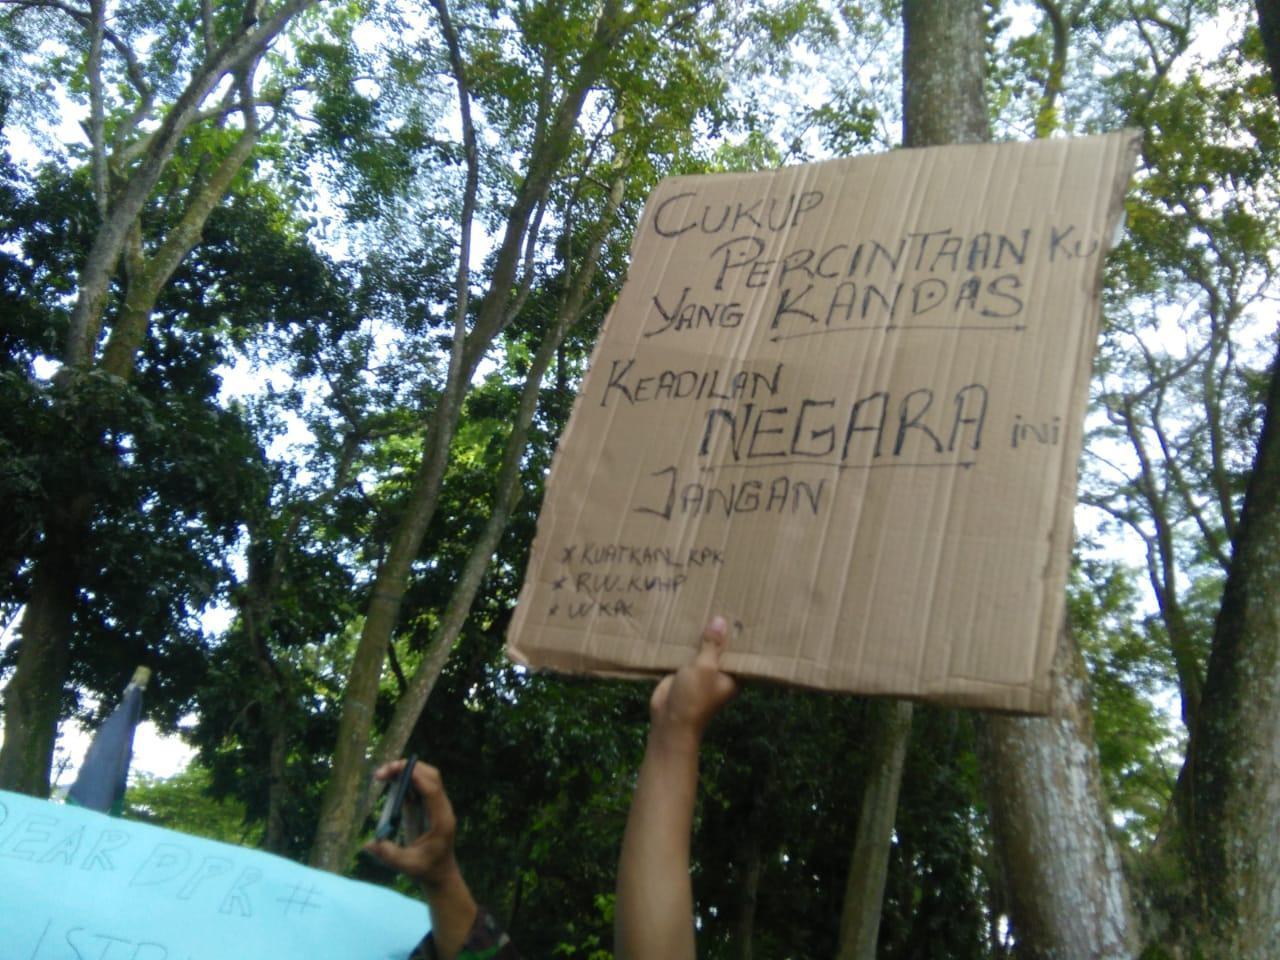 CUKUP
PERCINTAAN KU
YANG KANDAS
KEADILAN
NEGARA ini
JANGAN
* KUATKAN_KPK
* RUU_KUHP
* UU KPK
DEAR DPR #
ISTR